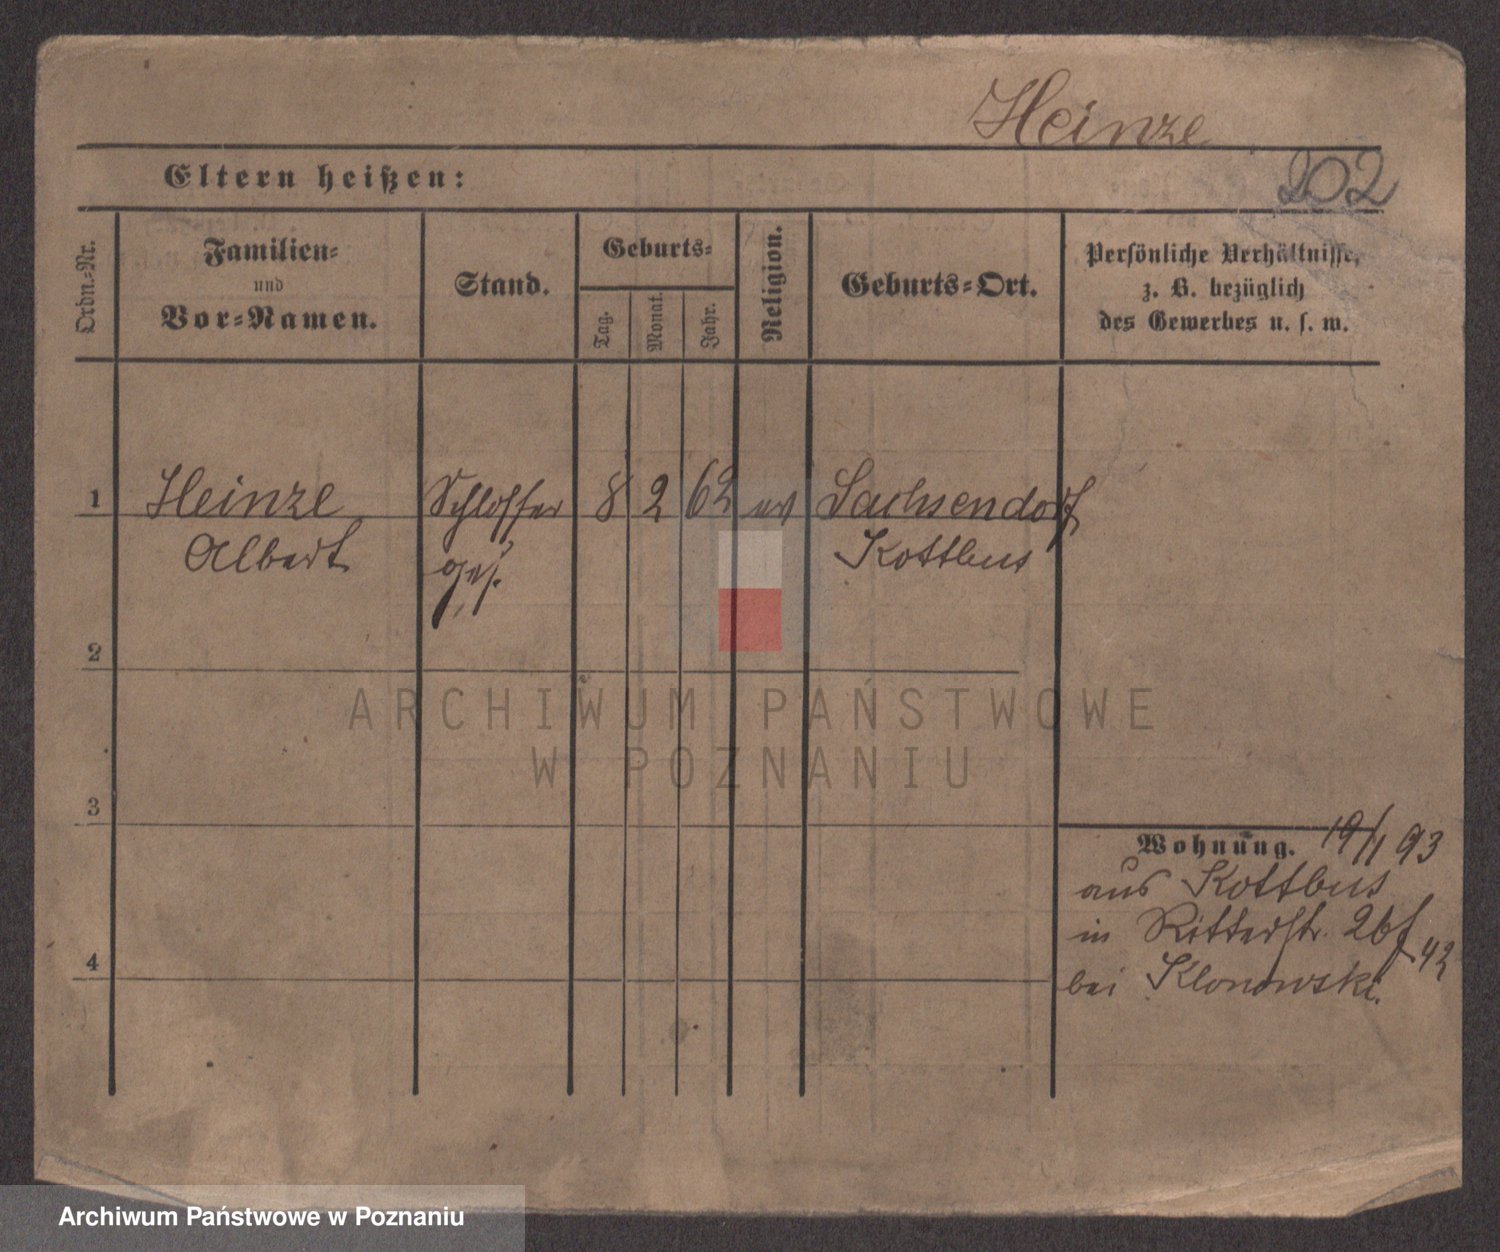 Heinze
202
Eltern heißen:
Ordn.-Nr.
Familien-
und
Vor-Namen.
Stand.
Geburts-
Tag.
Monat.
Jahr.
Religion.
Geburts-Ort.
Persönliche Verhältnisse,
z. B. bezüglich
des Gewerbes u. s. w.
1 Heinze Schlosser 8 2 62 ev Sachsendorf
Albert ges. Kottbus
2
ARCHIWUM PAŃSTWOWE
W POZNANIU
3
Wohnung. 19/1 93
aus Kottbus
in Ritterstr. 26
42
4
bei Klonowski.
Archiwum Państwowe w Poznaniu